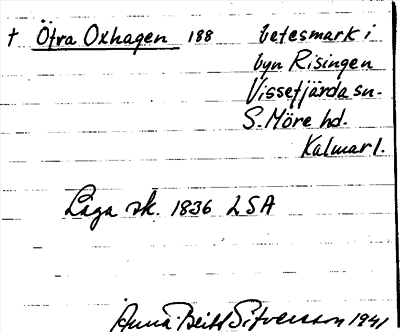 † Öfra Oxhagen 188 betesmark i
byn Risingen
Vissefjärda sn.
S. Möre hd.
Kalmar l.
Laga sk. 1836 LSA
Anna-Britt 1941